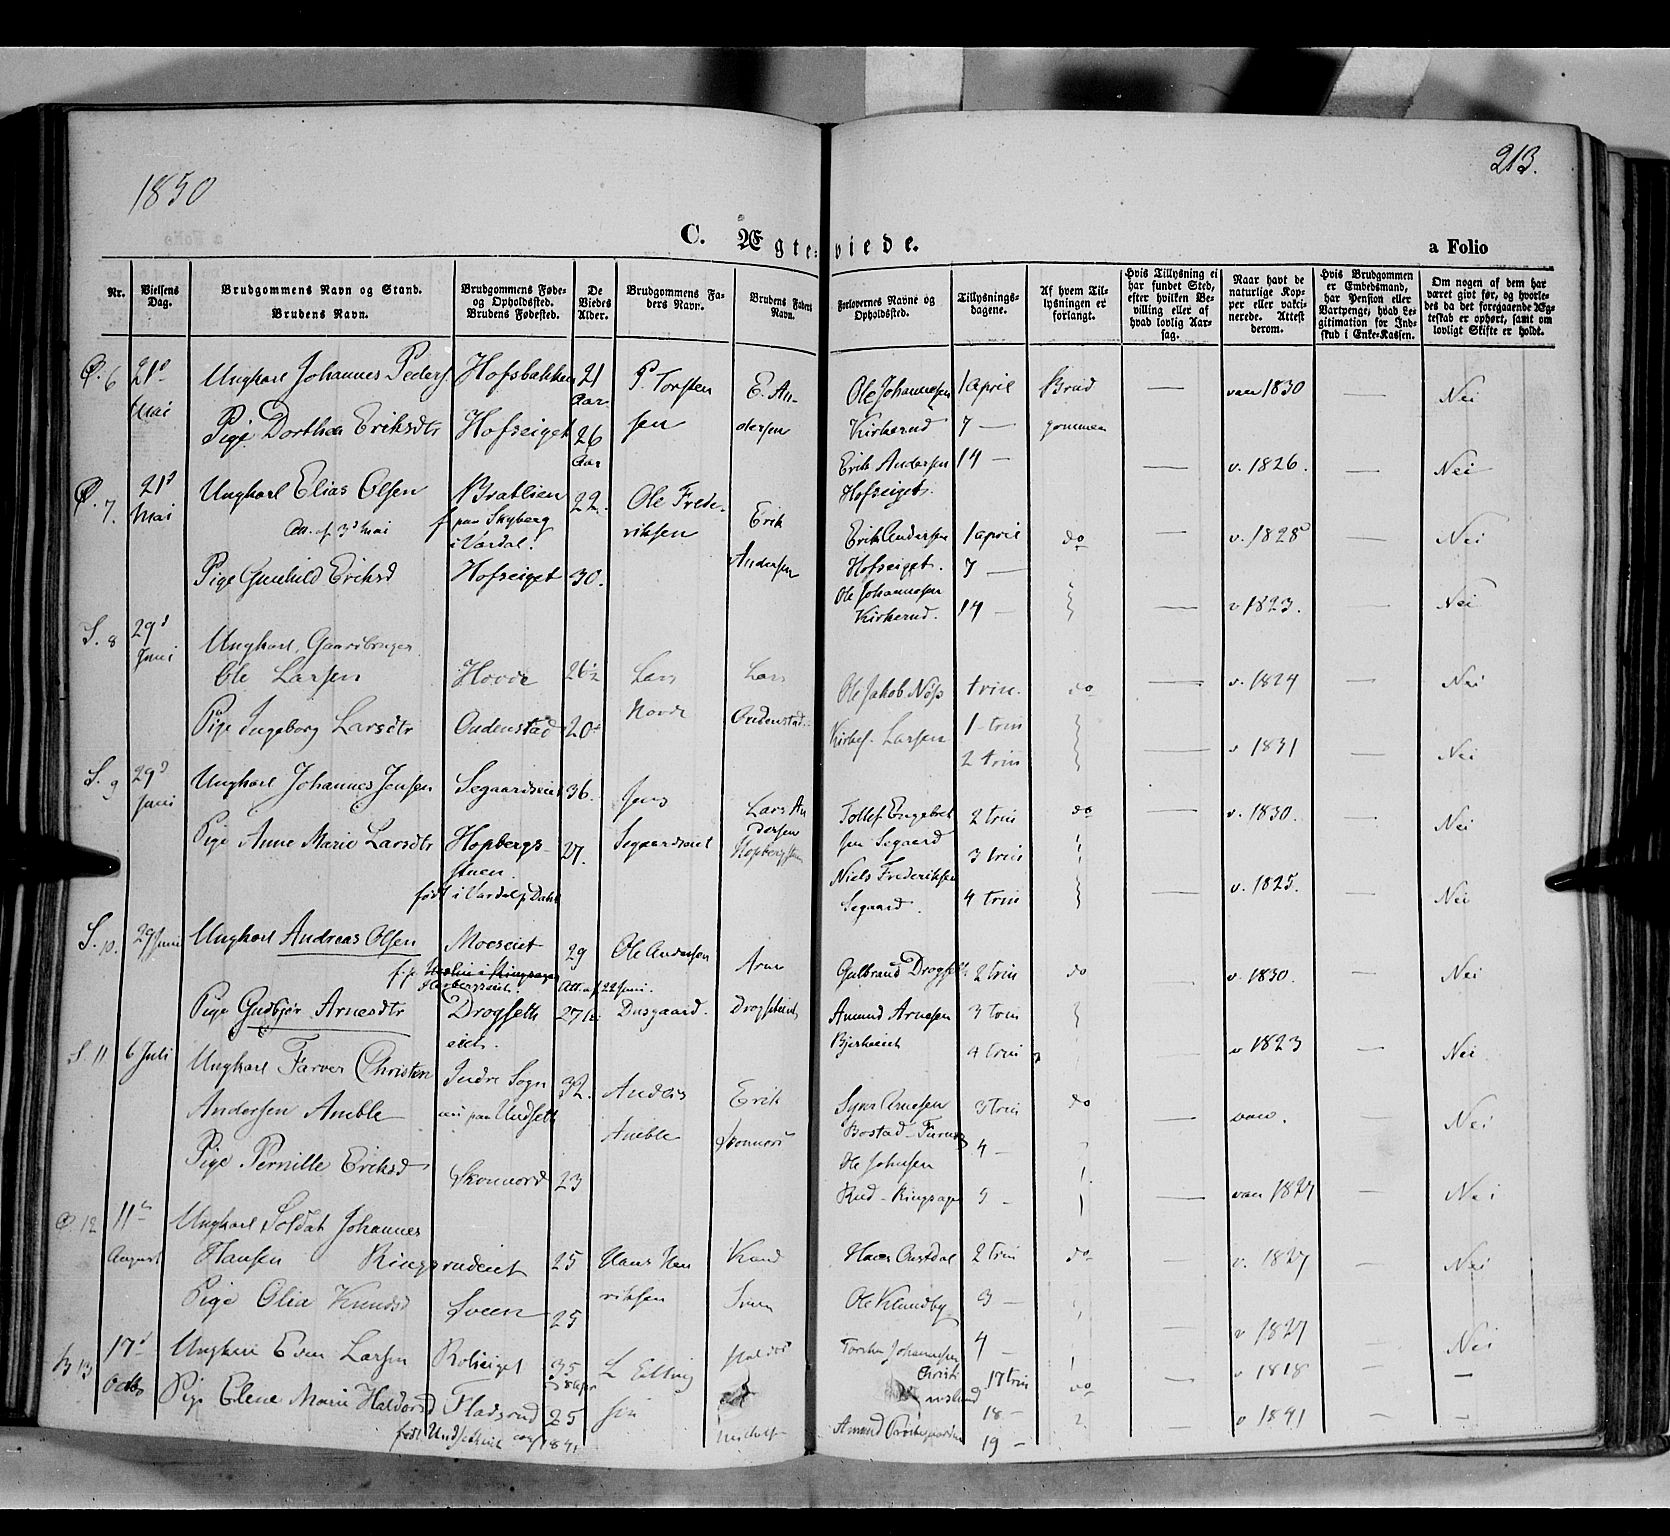 1850
213.
C. Ægteviede.
a Folio
Nr. Vielsens Dag. Brudgommens Navn og Stand. Brudens Navn. Brudgommens Føde- og Opholdssted. Brudens Fødested. De Viedes Alder. Brudgommens Faders Navn. Brudens Faders Navn. Forlovernes Navne og Opholdssted. Tillysningsdagene. Af hvem Tillysningen er forlangt. Hvis Tillysning ei har fundet Sted, efter hvilken Bevilling eller af hvad lovlig Aarsag. Naar havt de naturlige Kopper eller vaccinerede. Attest derom. Hvis Brudgommen er Embedsmand, har Pension eller Vartpenge, hvad Legitimation for Indskud i Enke-Kassen. Om nogen af dem har været gift før, og hvorledes da det foregaaende Ægteskab er ophørt, samt om lovligt Skifte er holdt.
6 21d Mai Ungkarl Johannes Peders. Hofsbakken 21 Aar P. Torsten E. An- Ole Johannesen 1 April Brud — van 1830 — Nei
Pige Dorthea Eriksdtr Hofseiget 26 Aar sen dersen Kirkerud 7 — gommen
Erik Andersen 14 — — v. 1826. — Nei
Hofseiget.
7. 21d Mai Ungkarl Elias Olsen Bratlien 22. Ole Frede-
Att. af 3d Mai f. paa Skyberg i Vardal. riksen Erik Erik Andersen 1 april do — v. 1828 — Nei
Pige Gunhild Eriksd Hofseiget 30. Andersen Hofseiget. 7 —
Ole Johannesen
Kirkerud. 14 — — v 1823. — Nei
S. 8 29d Juni Ungkarl, Gaardbruger
Ole Larsen Hovde 26½ Lars Lars Ole Jakob Näss trin. do — v. 1824 — Nei
Pige Ingeborg Larsdtr Oudenstad 20 Hovde Oudenstad Larsen 1 trin
2 trin — v 1831 — Nei
S. 9 29d Juni Ungkarl Johannes Jensen Segaardseiet 36. Jens Lars An Tollef Engebret 2 trin do — v. 1830. — Nei
Pige Anne Marie Larsdtr Hopbergs- 27. Segaardseiet dersen sen Segaard 3 trin
stuen. Niels Frederiksen — v. 1825. — Nei
født i Vardal p. Dahl Segaard. 4 trin
S. 10. 29 Juni Ungkarl Andreas Olsen Moeseiet 29 Ole Andersen Arne Gulbrand Drogseth 2 trin do — v. 1830. — Nei
f. p. Att. af 22 Juni.
Pige Gudbjør Arnesdtr Drogseth 27 Drogseteiet Amund Arnesen 3 trin
eiet. Bjerkeeiet 4 trin v 1823 — Nei
S. 11 6 Juli Ungkarl Farver Christen Indre Sogn 32. Anders Erik Syver Arnesen 3 trin do — van. — Nei
Andersen Amble Amble Skonnord 4 —
Pige Pernille Eriksd Skonnord 23 Ole Johnsen
Rud - Ringsager 5 — — van 1827 — Nei
12 11te August Ungkarl, Soldat Johannes
Hansen Ringsrudeiet 25 Hans Hen Knud Hans 2 trin do — v. 1827 — Nei
Pige Olia Knudsd Sveen 25 riksen Sveen Ole Klundby 3 —
4 — — v 1827 — Nei
13 17d Octbr Ungkarl Even Larsen 35 L Torsten Johannesen Christi 17 trin do v 1818 —
Pige Elene Marie Haldorsd Fladsrud 25 sen Amund 18 — — v 1841 — —
født 1841 19 —